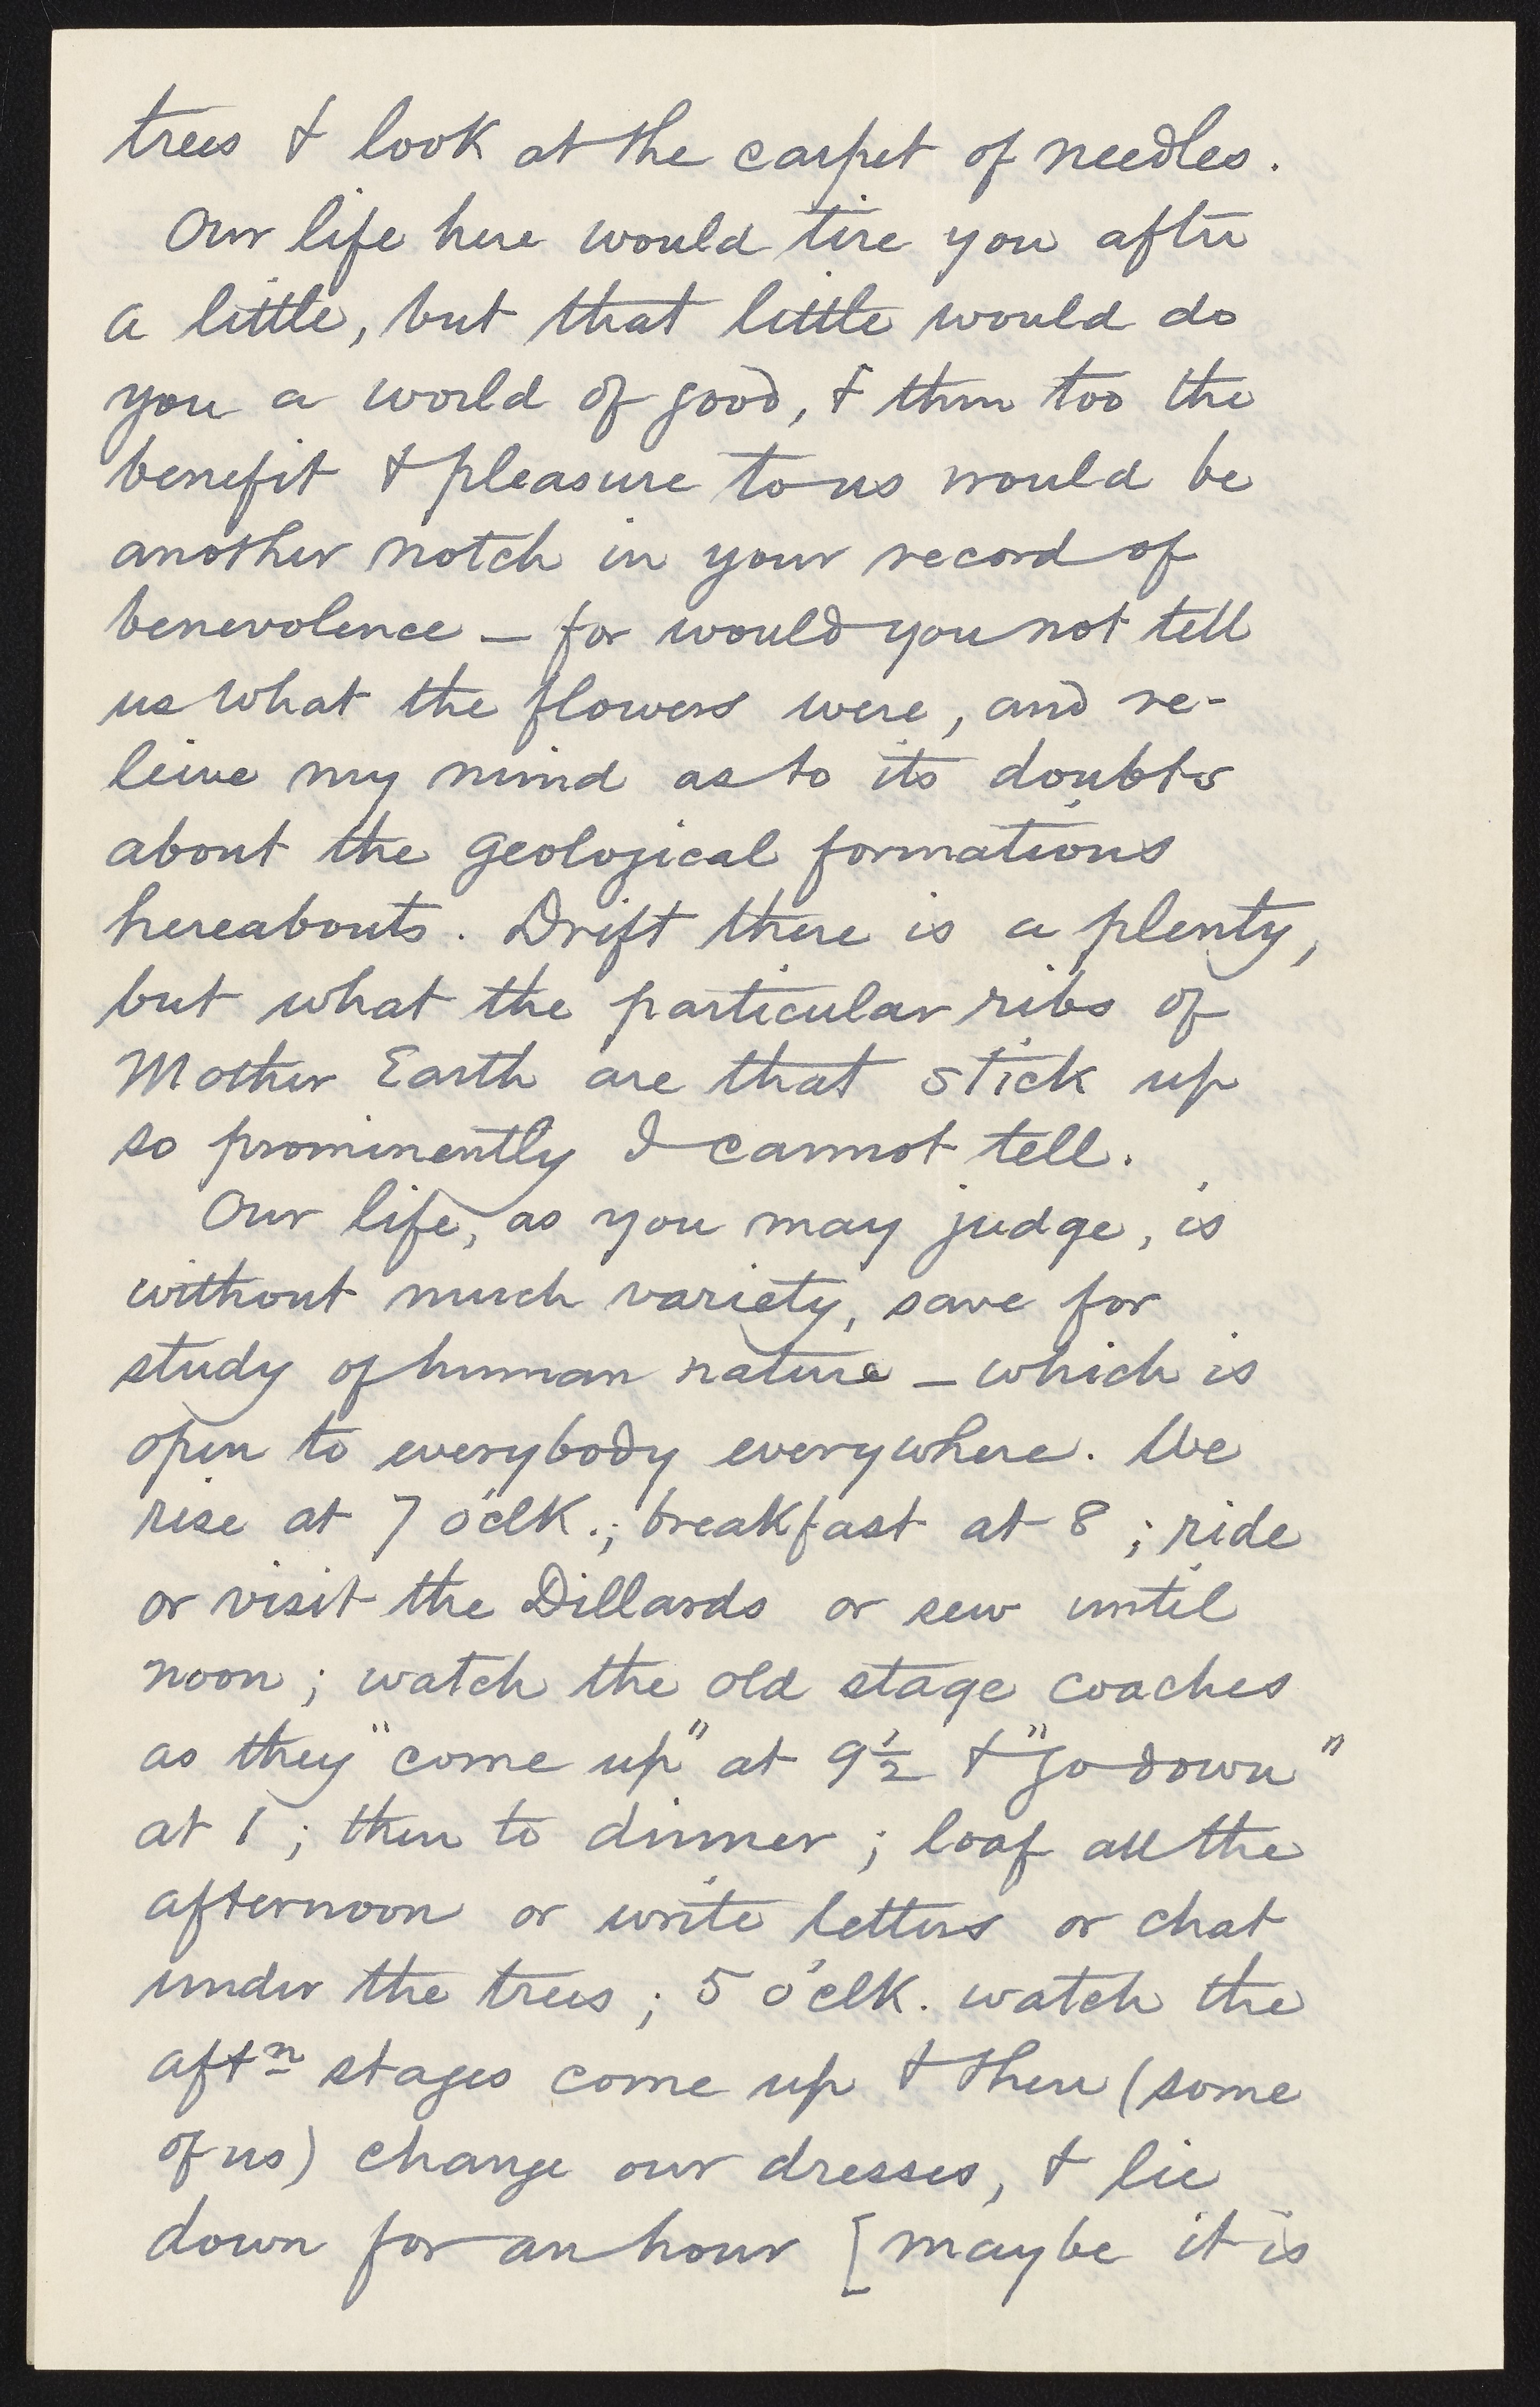 trees & look at the carpet of needles.
Our life here would tire you after
a little, but that little would do
you a world of good, & then too the
benefit & pleasure to us would be
another notch in your record of
benevolence – for would you not tell
us what the flowers were, and re-
leive my mind as to its doubts
about the geological formations
hereabouts. Drift there is a plenty,
but what the particular ribs of
Mother Earth are that stick up
so prominently I cannot tell.
Our life, as you may judge, is
without much variety, save for
study of human nature – which is
open to everybody everywhere. We
rise at 7 o'clk.; breakfast at 8; ride
or visit the Dillards or sew until
noon; watch the old stage coaches
as they "come up" at 9½ & "go down"
at 1; then to dinner; loaf all the
afternoon or write letters or chat
under the trees; 5 o'clk. watch the
aftn stages come up & then (some
of us) change our dresses, & lie
down for an hour [maybe it is